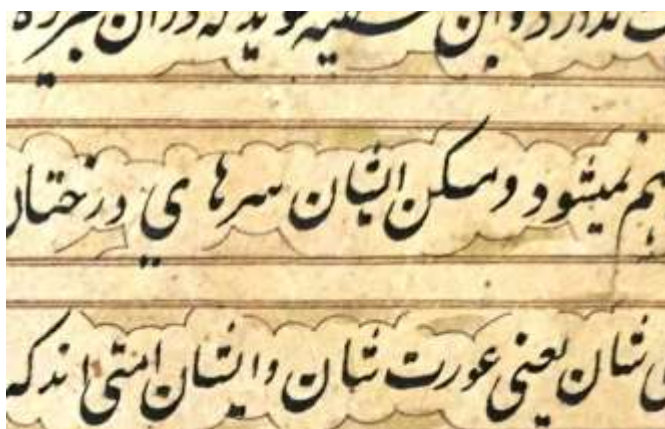 ندارد و ابن گوید که در آن جزیره
فهم نمیشود و مسکن ایشان سرهای درختان
شان یعنی عورت شان و ایشان امتی اند که